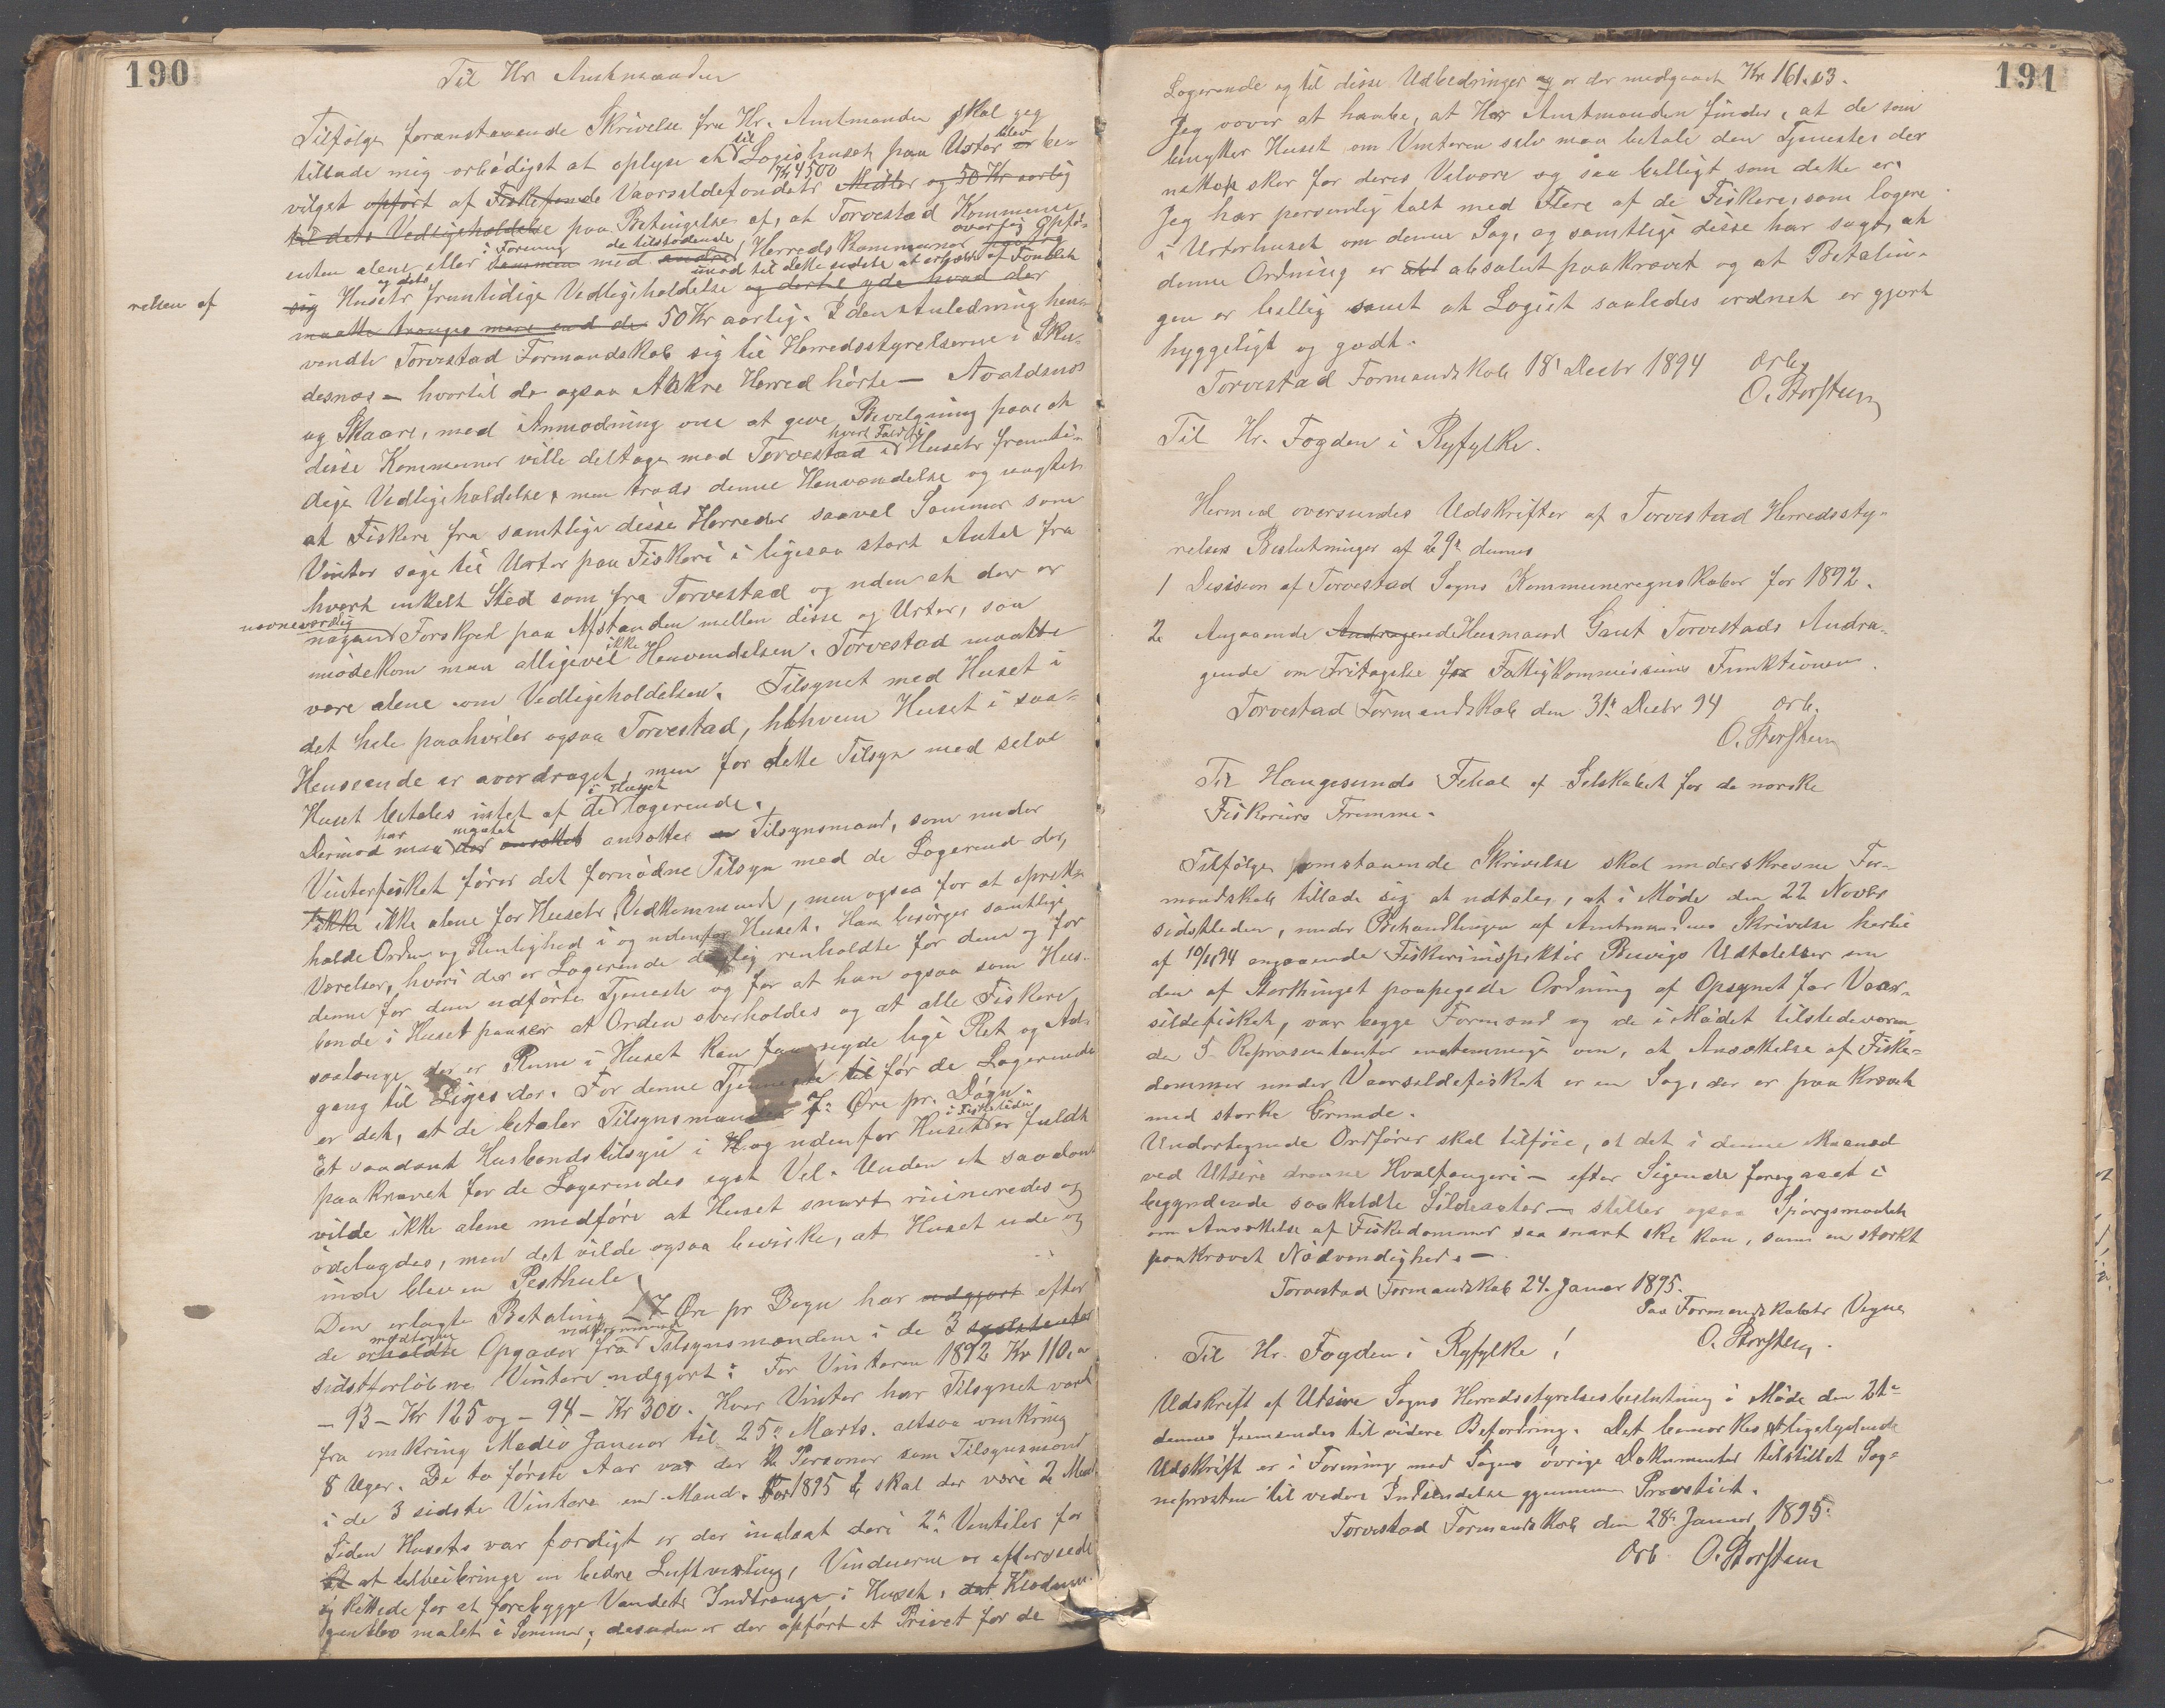 190
Til Hr Amtmanden
Tilfølge foranstaaende Skrivelse fra Hr. Amtmanden skal jeg
tillade mig ærbødigst at oplyse at til Logishuset paa Urter er blev be-
vilget opført af Fiskefonde Vaarsildefondets Kr 4500 Midler og 50 Kr aarlig
til dets Vedligeholdelse paa Betingelse af, at Torvestad Kommune
enten alene eller i Forening sammen med de tilstødende andre Herredskommuner overtog Opfø-
relsen af
sig Husets og dets fremtidige Vedligeholdelse imod til dette sidste at erholde af Fondet og dertil yde hvad der
maatte trænges mere end de 50 Kr aarlig. I den Anledning hen-
vendte Torvestad Formandskab sig til Herredsstyrelserne i Sku-
desnæs – hvortil da ogsaa Aakre Herred hørte – Avaldsnæs
og Skaare, med Anmodning om at give Bevilgning paa at
disse Kommuner ville deltage med Torvestad i hvert Fald i Husets fremti-
dige Vedligeholdelse, men trods denne Henvendelse og uagtet
at Fiskere fra samtlige disse Herreder saavel Sommer som
Vinter søge til Urter paa Fiskeri i ligesaa stort Antal fra
hvert enkelt Sted som fra Torvestad og uden at der er
nævneværdig nogen Forskjel paa Afstanden mellem disse og Urter, saa
mødekom man alligevel ikke Henvendelsen. Torvestad maatte
være alene om Vedligeholdelsen. Tilsynet med Huset i
det hele paahviler ogsaa Torvestad, hvem Huset i saa-
Henseende er overdraget, men for dette Tilsyn med selve
Huset betales intet af de i Huset logerende.
Derimod har man maattet der ansættes ansætte en Tilsynsmand, som under
Vinterfisket fører det fornødne Tilsyn med de Logerende der,
ikke ikke alene for Husets Vedkommende, men ogsaa for at opret-
holde Orden og Renlighed i og udenfor Huset. Han besørger samtlige
Værelser, hvori der er Logerende daglig renholdte for dem og for
denne for dem udførte Tjeneste og for at han ogsaa som Hus-
bonde i Huset passer at Orden overholdes og at alle Fiskere
saalænge der er Rum i Huset kan faa nyde lige Ret og Ad-
gang til Ligges der. For denne Tjeneste til for de Logerende
er det, at de betaler Tilsynsmanden 7 Øre pr. Døgn.
Et saadant Husbondstilsyn i H. og udenfor Huset i Fisketiden er fuldt
paakrævet for de Logerendes eget Vel. Uden et saadant
vilde ikke alene medføre at Huset snart ruineredes og
ødelagdes, men det vilde ogsaa bevirke, at Huset ude og
inde blev en Pesthule.
Den erlagte Betaling 7 Øre pr Døgn har udgjort efter
de erholdte modtagne Opgaver fra vedkommende Tilsynsmændene i de 3
sidstforløbne Vintere udgjort: For Vinteren 1892 Kr 110,00
– 93 – Kr 125 og – 94 – Kr 300. Hver Vinter har Tilsynet vart
fra omkring Medio Januar til 25de Marts, altsaa omkring
8 Uger. De to første Aar var der 2 Personer som Tilsynsmænd
i de 3 sidste Vintere en Mand. For 1895 skal der være 2 Mænd
Siden Husets var færdigt er der indsat deri 2 Ventiler for
at tilveiebringe en bedre Luftvexling, Vinduerne er eftersede
og kittede for at forebygge Vandets Indtrænge i Huset, Klædnin-
gen blev malet i Sommer; desuden er der opført et Privet for de
191
Logerende og til disse Udbedringer er der medgaaet Kr 161.03.
Jeg vover at haabe, at Hr Amtmanden finder, at de som
benytter Huset om Vinteren selv maa betale den Tjeneste der
netop sker for deres Velvære og saa billigt som dette er.
Jeg har personlig talt med Flere af de Fiskere, som logere
i Urterhuset om denne Sag, og samtlige disse har sagt, at
denne Ordning er absolut paakrævet og at Betalin-
gen er billig samt at Logiet saaledes ordnet er gjort
hyggeligt og godt.
Torvestad Formandskab 18 Decbr 1894 ærb.
O. Storsteen
Til Hr. Fogden i Ryfylke.
Hermed oversendes Udskrifter af Torvestad Herredssty-
relses Beslutninger af 29de dennes
1 Desision af Torvestad Sogns Kommuneregnskaber for 1892.
2 Angaaende Andragende Husmand Gaut Torvestads Andra-
gende om Fritagelse for Fattigkommissions Funktionen.
Torvestad Formandskab den 31te Decbr 94 ærb.
O. Storsteen
Til Haugesunds Filial af Selskabet for de norske
Fiskeriers Fremme.
Tilfølge omstaaende Skrivelse skal underskrevne For-
mandskab tillade sig at udtale, at i Møde den 22 Novbr
sidstleden, under Behandlingen af Amtmandens Skrivelse hertil
af 10/11 94 angaaende Fiskeriinspektør Buvigs Udtalelser om
den af Storthinget paapegede Ordning af Opsynet for Vaar-
sildefisket, var begge Formænd og de i Mødet tilstedeværen-
de 5 Repræsentanter enstemmige om, at Ansættelse af Fiske-
dommer under Vaarsildefisket er en Sag, der er paakrævet
med stærke Grunde.
Undertegnede Ordfører skal tilføie, at det i denne Maaned
ved Utsire drevne Hvalfangeri – efter Sigende foregaaet i
begyndende saakaldte Sildeaater – stiller ogsaa Spørgsmaalet
om Ansættelse af Fiskedommer saa snart ske kan, som en stærkt
paakrævet Nødvendighed. –
Torvestad Formandskab 24. Januar 1895.
Paa Formandskabets Vegne
O. Storsteen.
Til Hr. Fogden i Ryfylke!
Udskrift af Utsire Sogns Herredsstyrelsesbeslutning i Møde den 21de
dennes fremsendes til videre Befordring. Det bemærkes at ligelydende
Udskrift er i Forening med Sagens øvrige Dokumenter tilstillet Sog-
nepræsten til videre Indsendelse gjennem Provstiet.
Torvestad Formandskab den 28de Januar 1895.
ærb. O. Storsteen